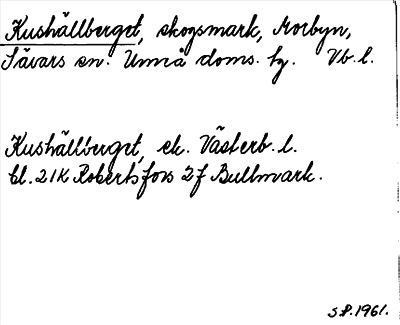 Kushällberget, skogsmark, Morbyn,
Sävars sn. Umeå doms. hg. Vb. l.
Kushällberget, ek. Västerb. l.
bl. 21K Robertsfors 2f Bullmark.
S.P. 1961.